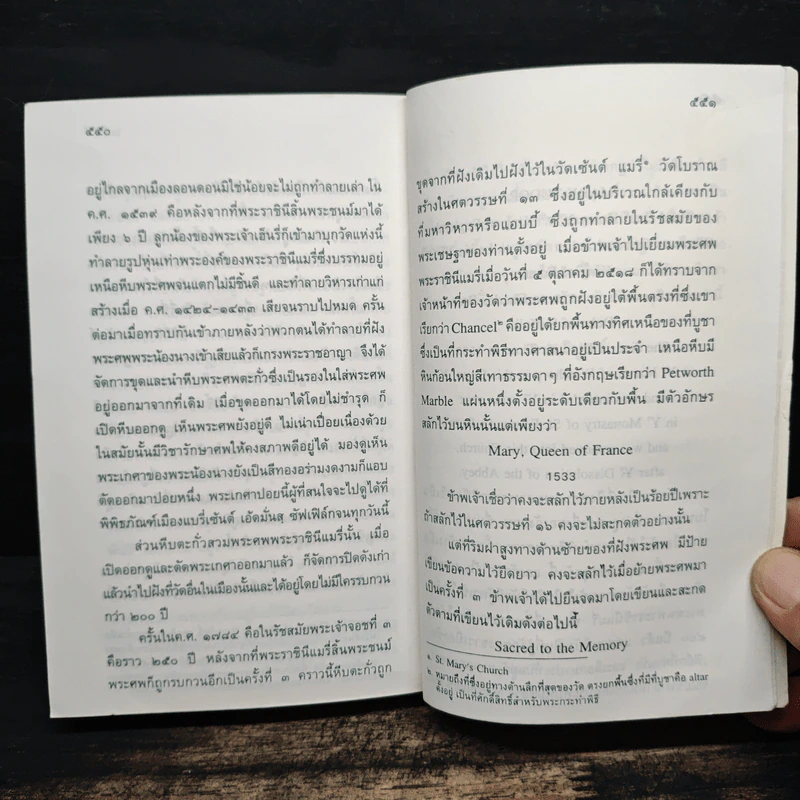 ๕๕๐
อยู่ไกลจากเมืองลอนดอนมิใช่น้อยจะไม่ถูกทำลายเล่า ใน
ค.ศ. ๑๕๓๙ คือหลังจากที่พระราชินีสิ้นพระชนม์มาได้
เพียง ๖ ปี ลูกน้องของพระเจ้าเฮ็นรี่ก็เข้ามาบุกวัดแห่งนี้
ทำลายรูปหุ่นเท่าพระองค์ของพระราชินีแมรี่ซึ่งบรรทมอยู่
เหนือหีบพระศพจนแตกไม่มีชิ้นดี และทำลายวิหารเก่าแก่
สร้างเมื่อ ค.ศ. ๑๔๒๔-๑๔๓๓ เสียจนราบไปหมด ครั้น
ต่อมาเมื่อทราบกันเข้าภายหลังว่าพวกตนได้ทำลายที่ฝัง
พระศพพระน้องนางเข้าเสียแล้วก็เกรงพระราชอาญา จึงได้
จัดการขุดและนำหีบพระศพตะกั่วซึ่งเป็นรองในใส่พระศพ
อยู่ออกมาจากที่เดิม เมื่อขุดออกมาได้โดยไม่ชำรุด ก็
เปิดหีบออกดู เห็นพระศพยังอยู่ดี ไม่เน่าเปื่อยเนื่องด้วย
ในสมัยนั้นมีวิชารักษาศพให้คงสภาพดีอยู่ได้ มองดูเห็น
พระเกศาของพระน้องนางยังเป็นสีทองอร่ามงดงามก็แอบ
ตัดออกมาปอยหนึ่ง พระเกศาปอยนี้ผู้ที่สนใจจะไปดูได้ที่
พิพิธภัณฑ์เมืองแบรี่เซ็นต์ เอ็ดมั่นสฺ ซัฟเฟิล์กจนทุกวันนี้
ส่วนหีบตะกั่วสวมพระศพพระราชินีแมรี่นั้น เมื่อ
เปิดออกดูและตัดพระเกศาออกมาแล้ว ก็จัดการปิดดังเก่า
แล้วนำไปฝังที่วัดอื่นในเมืองนั้นและได้อยู่โดยไม่มีใครรบกวน
กว่า ๒๐๐ ปี
ครั้นในค.ศ. ๑๗๘๔ คือในรัชสมัยพระเจ้าจอชที่ ๓
คือราว ๒๕๐ ปี หลังจากที่พระราชินีแมรี่สิ้นพระชนม์
พระศพก็ถูกรบกวนอีกเป็นครั้งที่ ๓ คราวนี้หีบตะกั่วถูก
๕๕๑
ขุดจากที่ฝังเดิมไปฝังไว้ในวัดเซ้นต์ แมรี่๑ วัดโบราณ
สร้างในศตวรรษที่ ๑๓ ซึ่งอยู่ในบริเวณใกล้เคียงกับ
ที่มหาวิหารหรือแอบบี้ ซึ่งถูกทำลายในรัชสมัยของ
พระเชษฐาของท่านตั้งอยู่ เมื่อข้าพเจ้าไปเยี่ยมพระศพ
พระราชินีแมรี่เมื่อวันที่ ๕ ตุลาคม ๒๕๑๘ ก็ได้ทราบจาก
เจ้าหน้าที่ของวัดว่าพระศพถูกฝังอยู่ใต้พื้นตรงที่ซึ่งเขา
เรียกว่า Chancel๒ คืออยู่ใต้ยกพื้นทางทิศเหนือของที่บูชา
ซึ่งเป็นที่กระทำพิธีทางศาสนาอยู่เป็นประจำ เหนือหีบมี
หินก้อนใหญ่สีเทาธรรมดาๆ ที่อังกฤษเรียกว่า Petworth
Marble แผ่นหนึ่งตั้งอยู่ระดับเดียวกับพื้น มีตัวอักษร
สลักไว้บนหินนั้นแต่เพียงว่า
Mary, Queen of France
1533
ข้าพเจ้าเชื่อว่าคงจะสลักไว้ภายหลังเป็นร้อยปีเพราะ
ถ้าสลักไว้ในศตวรรษที่ ๑๖ คงจะไม่สะกดตัวอย่างนั้น
แต่ที่ริมฝาสูงทางด้านซ้ายของที่ฝังพระศพ มีป้าย
เขียนข้อความไว้ยืดยาว คงจะสลักไว้เมื่อย้ายพระศพมา
เป็นครั้งที่ ๓ ข้าพเจ้าได้ไปยืนจดมาโดยเขียนและสะกด
ตัวตามที่เขียนไว้เดิมดังต่อไปนี้
Sacred to the Memory
๑. St. Mary's Church
๒. หมายถึงที่ซึ่งอยู่ทางด้านลึกที่สุดของวัด ตรงยกพื้นซึ่งที่มีที่บูชาคือ altar
ตั้งอยู่ เป็นที่ศักดิ์สิทธิ์สำหรับพระกระทำพิธี